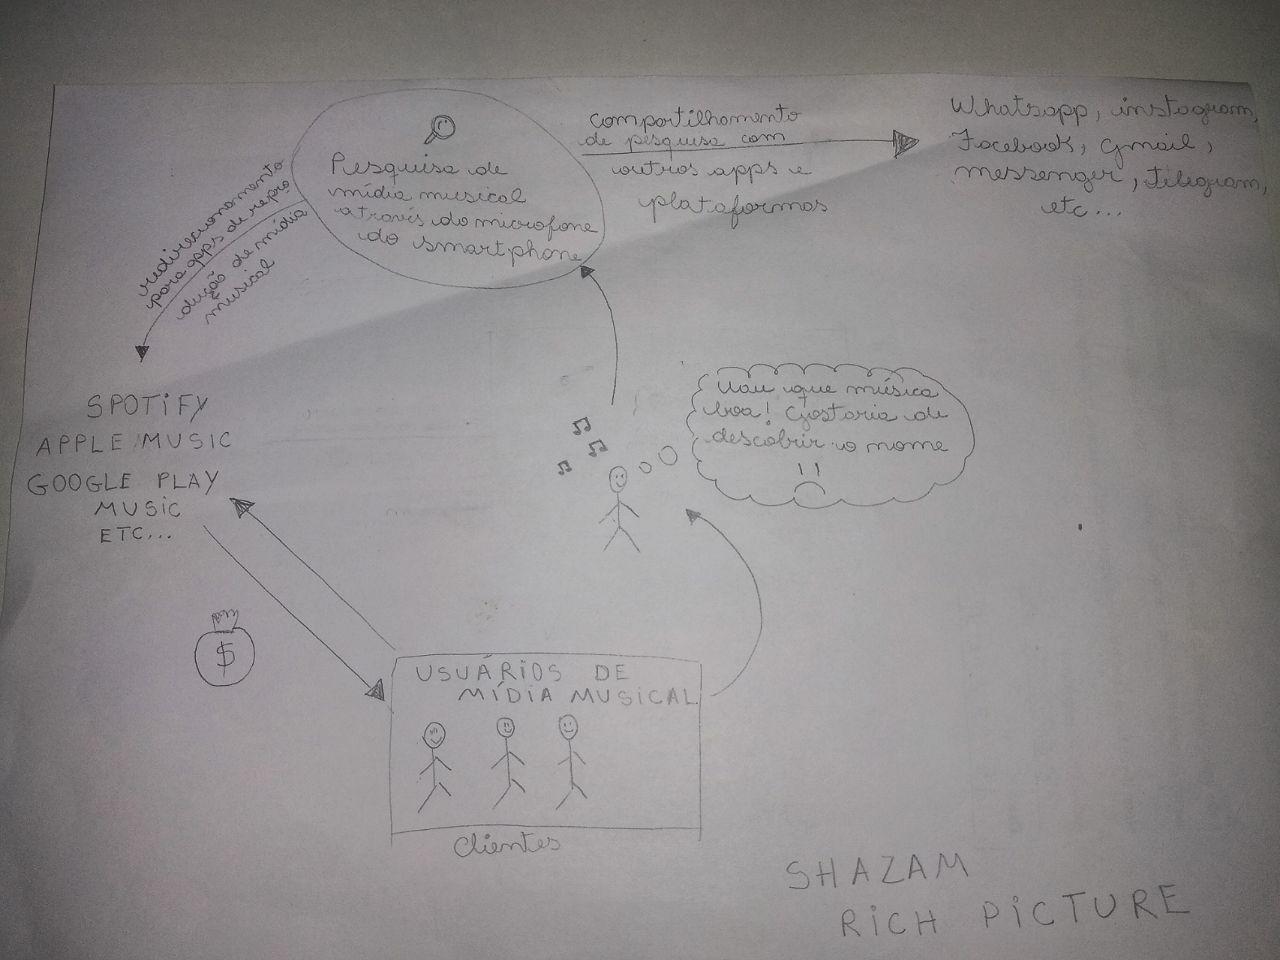 Pesquisa de
mídia musical
através do microfone
do smartphone
compartilhamento
de pesquisa com
outros apps e
plataformas
Whatsapp, instagram,
Facebook, gmail,
messenger, telegram,
etc...
redirecionamento
para apps de repro
dução de mídia
musical
SPOTIFY
APPLE MUSIC
GOOGLE PLAY
MUSIC
ETC...
Uau que música
boa! Gostaria de
descobrir o nome
$
USUÁRIOS DE
MÍDIA MUSICAL
Clientes
SHAZAM
RICH PICTURE